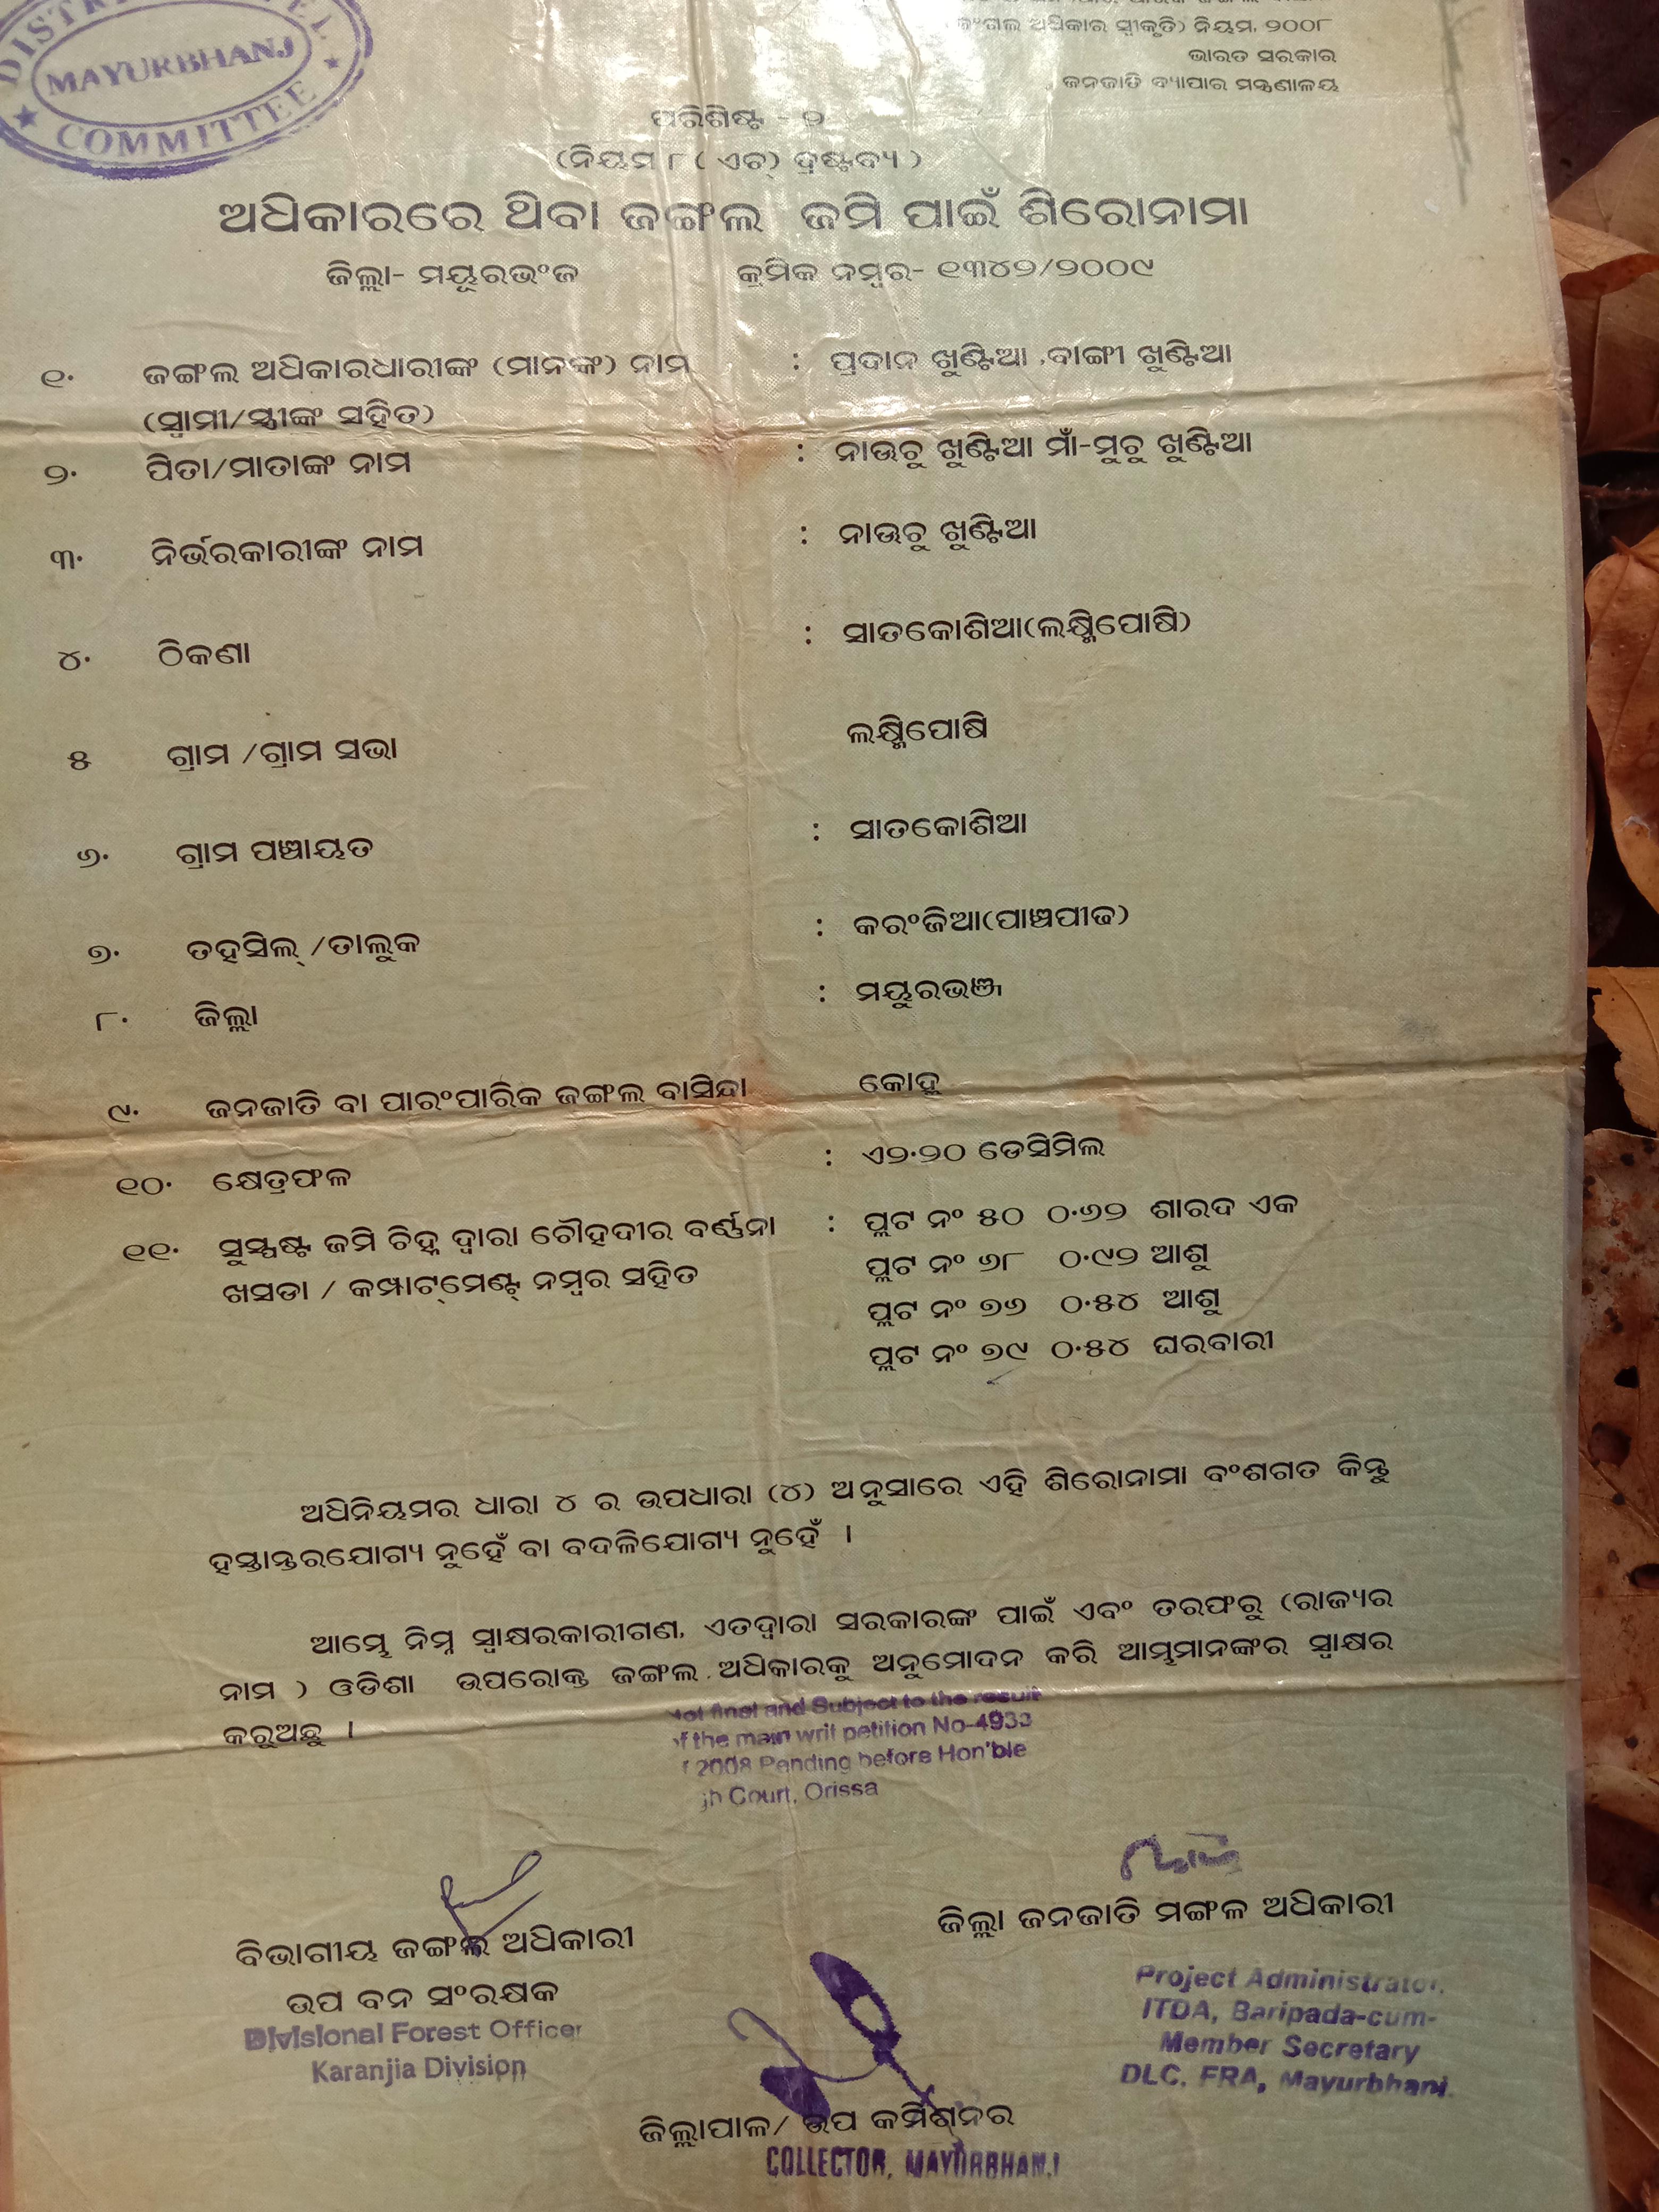 MAYURBHANJ
COMMITTEE
ଜଙ୍ଗଲ ଅଧିକାର ସ୍ୱୀକୃତି) ନିୟମ, ୨୦୦୮
ଭାରତ ସରକାର
ଜନଜାତି ବ୍ୟାପାର ମନ୍ତ୍ରଣାଳୟ
ପରିଶିଷ୍ଟ - ୨
(ନିୟମ ୮ ( ଏଚ୍) ଦ୍ରଷ୍ଟବ୍ୟ )
ଅଧିକାରରେ ଥିବା ଜଙ୍ଗଲ ଜମି ପାଇଁ ଶିରୋନାମା
ଜିଲ୍ଲା- ମୟୂରଭଂଜ କ୍ରମିକ ନମ୍ବର- ୧୩୪୨/୨୦୦୯
୧. ଜଙ୍ଗଲ ଅଧିକାରଧାରୀଙ୍କ (ମାନଙ୍କ) ନାମ : ପ୍ରଦାନ ଖୁଣ୍ଟିଆ ,ବାଙ୍ଗୀ ଖୁଣ୍ଟିଆ
(ସ୍ୱାମୀ/ସ୍ତ୍ରୀଙ୍କ ସହିତ)
୨. ପିତା/ମାତାଙ୍କ ନାମ : ନାଉଚୁ ଖୁଣ୍ଟିଆ ମାଁ-ମୁଚୁ ଖୁଣ୍ଟିଆ
୩. ନିର୍ଭରକାରୀଙ୍କ ନାମ : ନାଉଚୁ ଖୁଣ୍ଟିଆ
୪. ଠିକଣା : ସାତକୋଶିଆ(ଲକ୍ଷ୍ମିପୋଷି)
୫ ଗ୍ରାମ /ଗ୍ରାମ ସଭା ଲକ୍ଷ୍ମିପୋଷି
୬. ଗ୍ରାମ ପଞ୍ଚାୟତ : ସାତକୋଶିଆ
୭. ତହସିଲ୍ /ତାଲୁକ : କରଂଜିଆ(ପାଞ୍ଚପୀଢ)
୮. ଜିଲ୍ଲା : ମୟୁରଭଞ୍ଜ
୯. ଜନଜାତି ବା ପାରଂପାରିକ ଜଙ୍ଗଲ ବାସିନ୍ଦା କୋହ୍ଲ
୧୦. କ୍ଷେତ୍ରଫଳ : ଏ୨.୨୦ ଡେସିମିଲ
୧୧. ସୁସ୍ପଷ୍ଟ ଜମି ଚିହ୍ନ ଦ୍ୱାରା ଚୌହଦୀର ବର୍ଣ୍ଣନା : ପ୍ଲଟ ନଂ ୫୦ ୦.୬୨ ଶାରଦ ଏକ
ଖସଡା / କମ୍ପାଟ୍‌ମେଣ୍ଟ୍ ନମ୍ବର ସହିତ ପ୍ଲଟ ନଂ ୬୮ ୦.୯୨ ଆଶୁ
ପ୍ଲଟ ନଂ ୭୬ ୦.୫୪ ଆଶୁ
ପ୍ଲଟ ନଂ ୭୯ ୦.୫୪ ଘରବାରୀ
ଅଧିନିୟମର ଧାରା ୪ ର ଉପଧାରା (୪) ଅନୁସାରେ ଏହି ଶିରୋନାମା ବଂଶଗତ କିନ୍ତୁ
ହସ୍ତାନ୍ତରଯୋଗ୍ୟ ନୁହେଁ ବା ବଦଳିଯୋଗ୍ୟ ନୁହେଁ ।
ଆମ୍ଭେ ନିମ୍ନ ସ୍ୱାକ୍ଷରକାରୀଗଣ, ଏତଦ୍ୱାରା ସରକାରଙ୍କ ପାଇଁ ଏବଂ ତରଫରୁ (ରାଜ୍ୟର
ନାମ ) ଓଡିଶା ଉପରୋକ୍ତ ଜଙ୍ଗଲ ଅଧିକାରକୁ ଅନୁମୋଦନ କରି ଆମ୍ଭମାନଙ୍କର ସ୍ୱାକ୍ଷର
କରୁଅଛୁ ।
final and Subject to the result
the main writ petition No-4933
2008 Pending before Hon'ble
Court, Orissa
ବିଭାଗୀୟ ଜଙ୍ଗଲ ଅଧିକାରୀ
ଉପ ବନ ସଂରକ୍ଷକ
Divisional Forest Officer
Karanjia Division
ଜିଲ୍ଲା ଜନଜାତି ମଙ୍ଗଳ ଅଧିକାରୀ
Project Administrator,
ITDA, Baripada-cum-
Member Secretary
DLC, FRA, Mayurbhanj.
ଜିଲ୍ଲାପାଳ/ ଉପ କମିଶ୍ନର
COLLECTOR, MAYURBHANJ